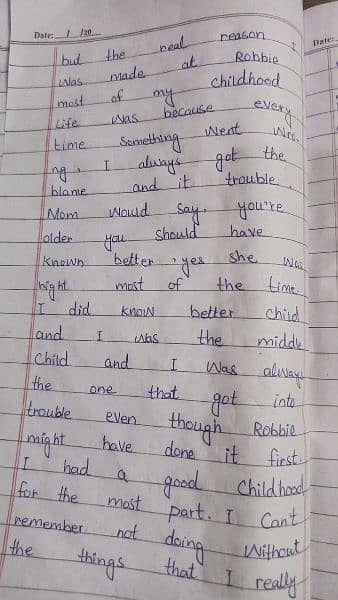 Date: / /20
Date:
but the real reason I
was made at Robbie
most of my childhood
life was because every
time something went wro
ng, I always got the
blame and it trouble.
Mom would say, you're
older you should have
known better, yes she was
right most of the time.
I did know better child
and I was the middle
Child and I was always
the one that got into
trouble even though Robbie
might have done it first.
I had a good Childhood
for the most part. I Can't
remember not doing Without
the things that I really